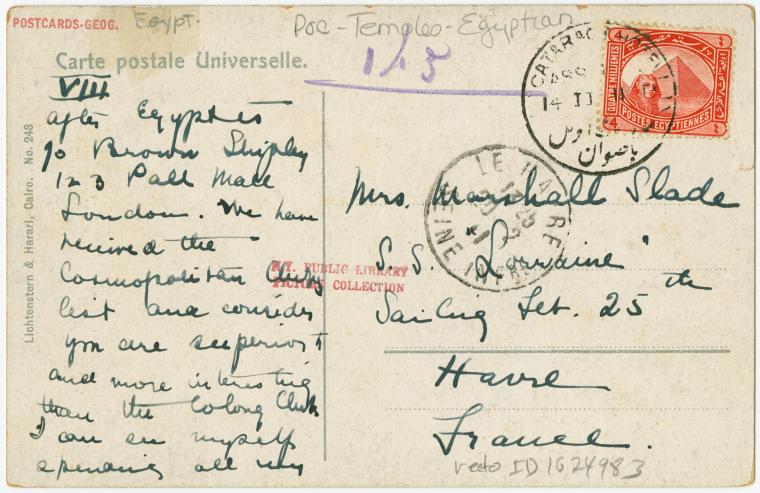 POSTCARDS-GEOG. Egypt.
Poc-Temples-Egyptian
Carte postale Universelle.
VIII
after Egyptes
℅ Brown Shipley
123 Pall Mall
London. We have
received the
Cosmopolitan Clubs
list and consider
you are superior
and more interesting
than the Colony Club
I can see myself
spending all my
Lichtenstern & Harari, Cairo. No. 248
CATARACT HOTEL
ASS
14 II
باصوان
QUATRE MILLIEMES
POSTES EGYPTIENNES
4
LE HAVRE
SEINE INFRE
Mrs. Marshall Slade
S.S. "Lorraine"
Sailing Feb. 25th
Havre
France.
N.Y. PUBLIC LIBRARY
PICTURE COLLECTION
recto ID 1624983